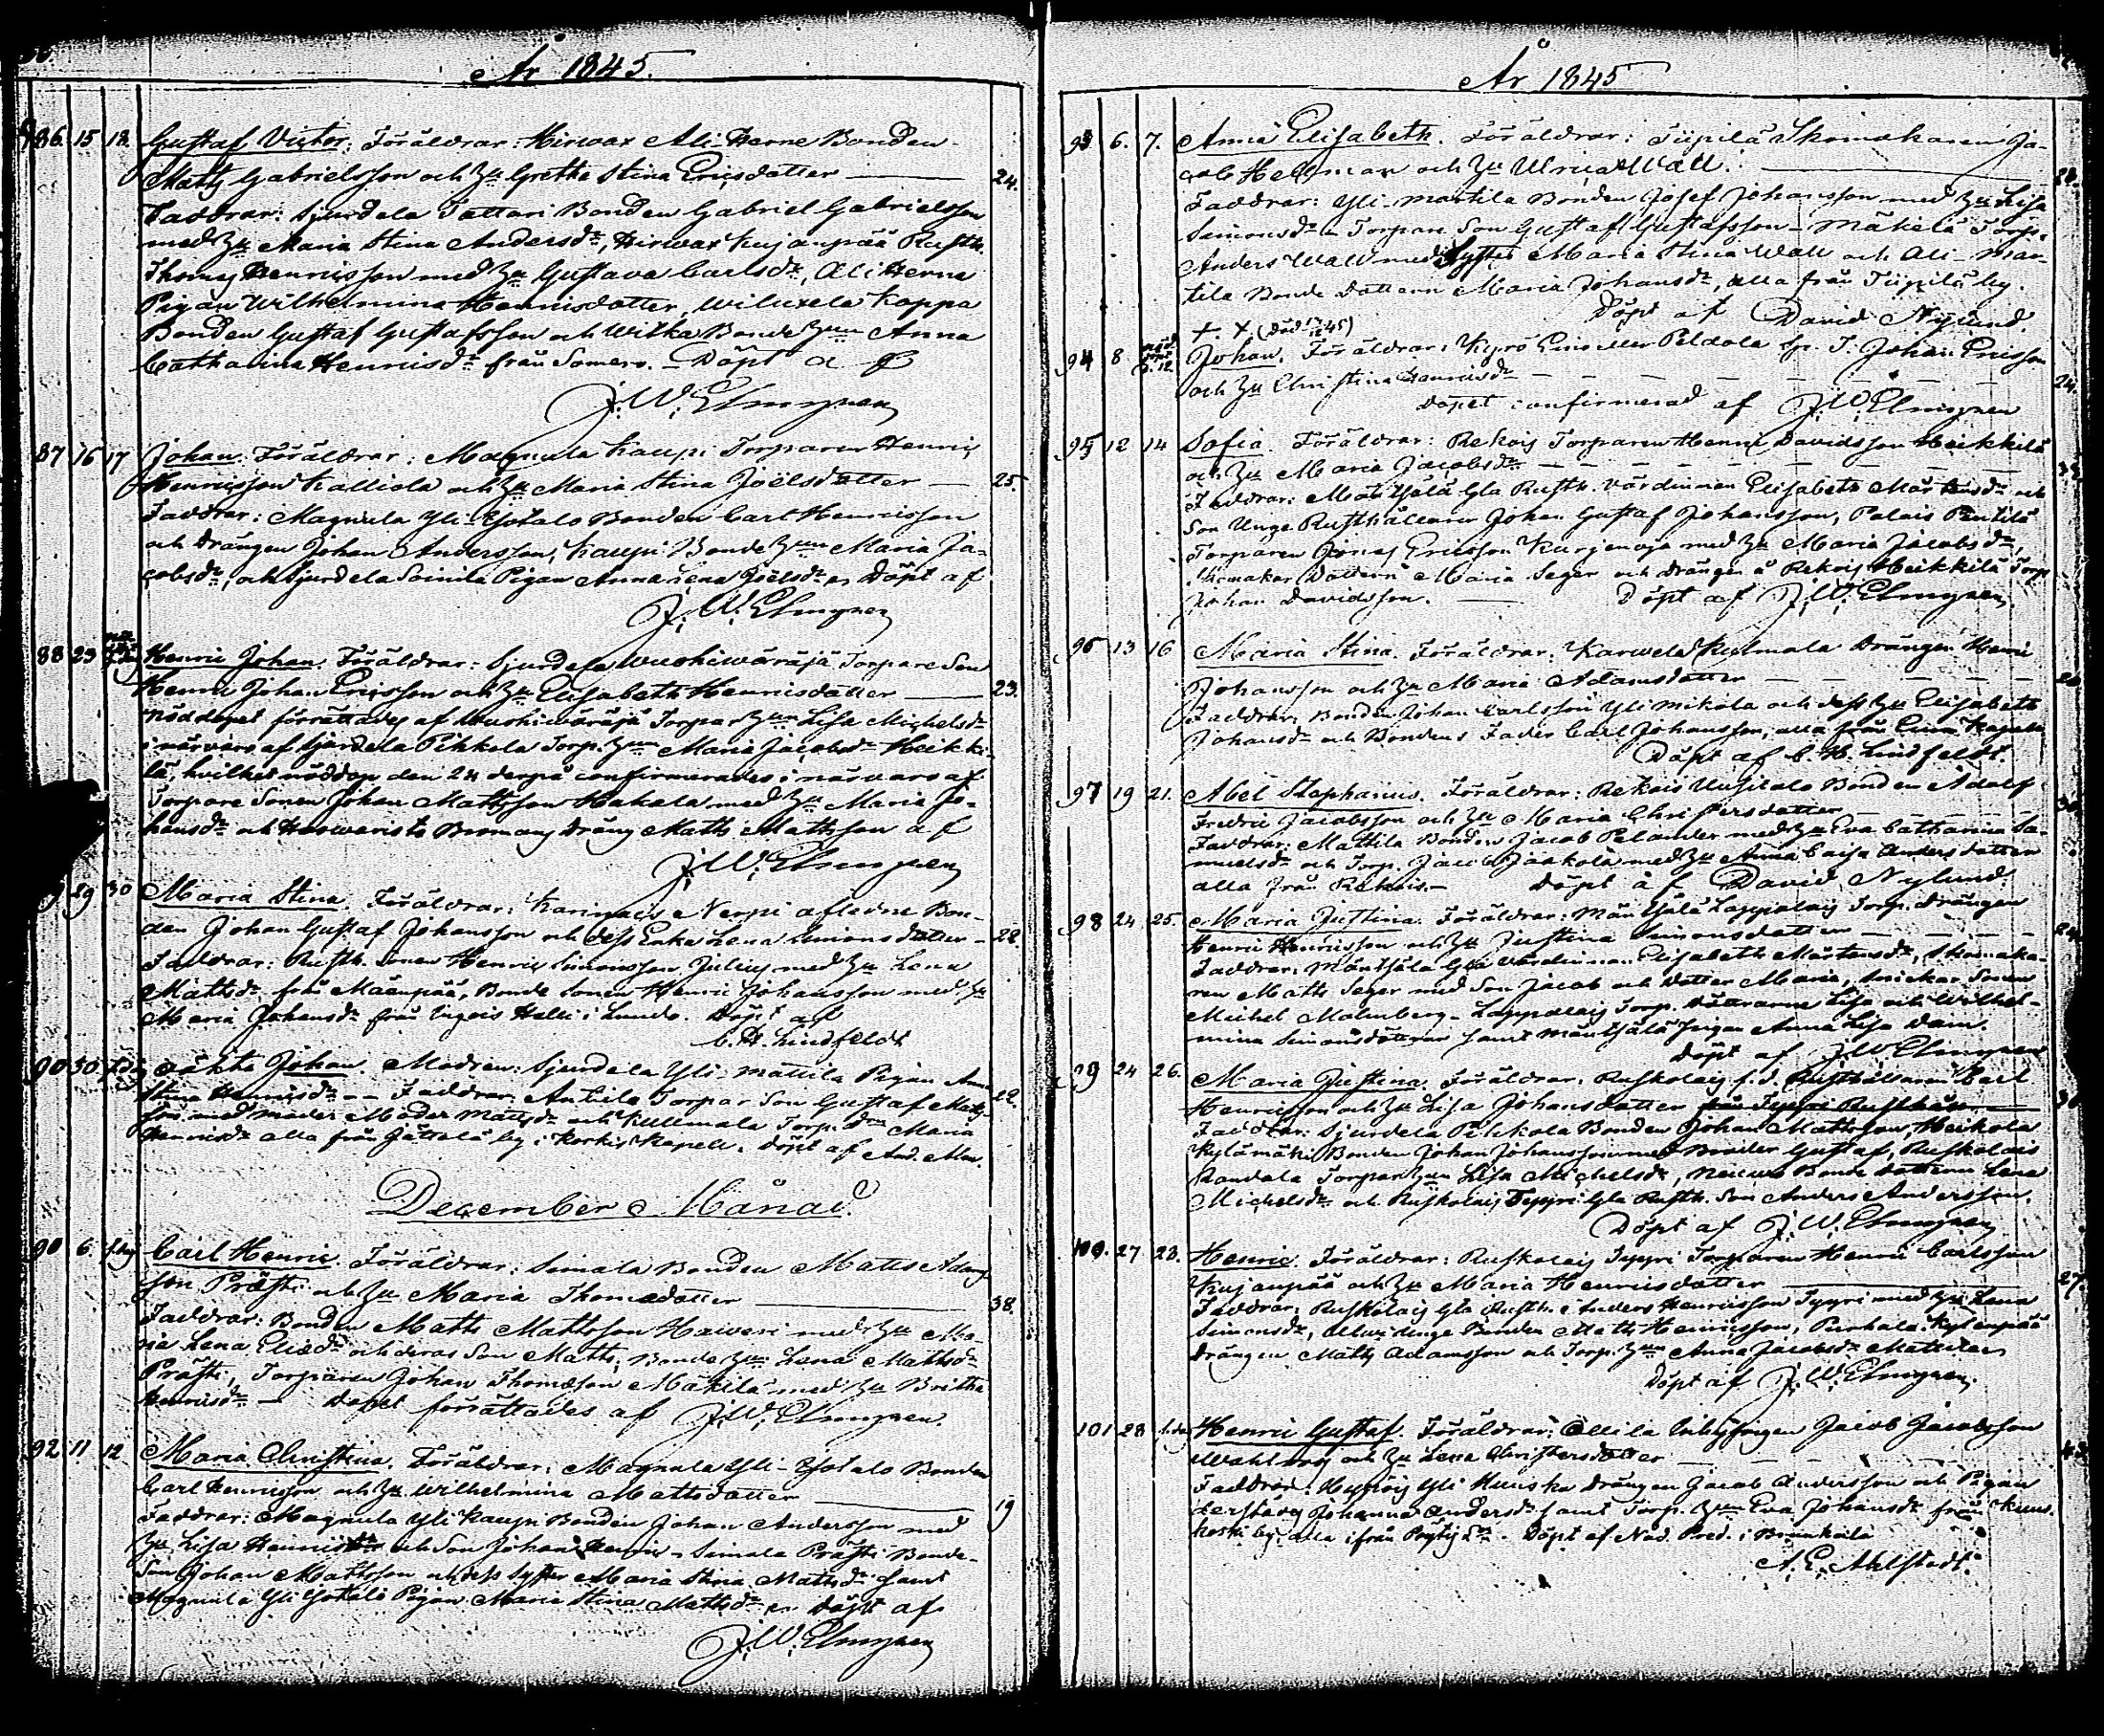 År 1845.
86. 15 18. Gustaf Victor. Föräldrar: Hirwax Ali-Herne Bonden
Matts Gabrielsson och Hu Gretha Stina Ericsdotter 24.
Faddrar: Sjurdela Tattari Bonden Gabriel Gabrielsson
med Hu Maria Stina Andersdr, Hirwax Kujanpää Rusth.
Thomas Henricsson med Hu Gustava Carlsdr, Ali Herne
Pigan Wilhelmina Henricsdotter, Wiluxela Kappa
Bonden Gustaf Gustafsson och Bonde Hun Anna
Catharina Henricsdr från Somero. – Döpt af
J. W. Elmgren
87 16 17 Johan. Föräldrar: Magnula Kaupi Torparen Henric
Henricsson Kalliola och Hu Maria Stina Joëlsdotter 25.
Faddrar: Magnula Yli-Yotalo Bonden Carl Henricsson
och Drängen Johan Andersson, Kaupi Bonde Hun Maria Ja-
cobsdr, och Sjurdela Soinila Pigan Anna Lena Joëlsdr. Döpt af
J. W. Elmgren
88 23 Henric Johan. Föräldrar: Sjurdela Torpare Son
Henric Johan Ericsson och Hu Elisabeth Henricsdotter 23.
Nöddopet förrättades af Torpar Hun Lisa Michelsdr
i närvaro af Sjurdela Pihkola Torp. Hun Maria Jacobsdr Heikki-
lä, hvilket nöddop den 24 derpå confirmerades i närvaro af
Torpare Sonen Johan Mattsson Hakala med Hu Maria Jo-
hansdr och Dräng Matts Mattsson af
J. W. Elmgren
29 30 Maria Stina. Föräldrar: Karinais Nerpi aflidne Bon-
den Johan Gustaf Johansson och dess Enka Lena Simonsdotter – 28.
Faddrar: Rusth. Sonen Henric Simonsson Julius med Hu Lena
Mattsdr från Mäenpää, Bonde Sonen Henric Johansson med Hu
Maria Johansdr från Halli i Lundo. Döpt af
C. H. Lindfeldt
90 30 Johan. Modren: Sjurdela Yli-Mattila Pigan Anna
Stina Henricsdr – Faddrar: Anttila Torpar Son Gustaf Matts-
son med Moder Mattsdr och Kullumala Torp. Maria
Henricsdr alla från by i Koskis Kapell. Döpt af
December Månad.
90 6 f. dag Carl Henric. Föräldrar: Simala Bonden Matts Adams-
son Prästi och Hu Maria Thomædotter 38.
Faddrar: Bonden Matts Mattsson med Hu Ma-
ria Lena Eliædr och deras Son Matts, Bonde Hun Lena Mattsdr
Prästi, Torparen Johan Thomæson Mäkilä med Hu Britha
Henricsdr – Dopet förrättades af J. W. Elmgren.
92 11 12 Maria Christina. Föräldrar: Magnula Yli-Yotalo Bonden
Carl Henricsson och Hu Wilhelmina Mattsdotter 19
Faddrar: Magnula Yli Kaupi Bonden Johan Andersson med
Hu Lisa Henricsdr och Son Johan Henric – Simala Prästi Bonde-
Son Johan Mattsson och dess Syster Maria Stina Mattsdr samt
Magnula Yli Yotalo Pigan Maria Stina Mattsdr. Döpt af
J. W. Elmgren
År 1845
93 6. 7. Anna Elisabeth. Föräldrar: Tiipilä Skomakaren Ja-
cob Hellman och Hu Ulrica Wall.
Faddrar: Yli-Martila Bonden Josef Johansson med Hu Lisa
Simonsdr – Torpare Son Gustaf Gustafsson – Mäkelä Torp.
Anders Wall med Syster Maria Stina Wall och Ali-Mar-
tila Bonde Dottern Maria Johansdr, alla från Tiipilä by.
Döpt af David Nylund.
94 8 Johan. Föräldrar: Kyrö Peldola Johan Ericsson
och Hu Christina Henricsdr 24.
Dopet confirmerad af J. W. Elmgren
95 12 14 Sofia. Föräldrar: Rekois Torparen Henric Davidsson Heikkilä
och Hu Maria Jacobsdr
Faddrar: Gla Rusth. Värdinnan Elisabeth Mårtensdr och
Son Unge Rusthållaren Johan Gustaf Johansson, Palais Penttilä
Torparen Jonas Ericsson Karjenoja med Hu Maria Jacobsdr,
Skomakar Dottern Maria Seger och Drängen å Rekois Heikkilä Torp
Johan Davidsson. Döpt af J. W. Elmgren.
96 13 16 Maria Stina. Föräldrar: Karwela Drängen Henric
Johansson och Hu Maria Adamsdotter
Faddrar: Bonden Johan Carlsson Yli Mikola och dess Hu Elisabeth
Johansdr och Bondens Fader Carl Johansson, alla från
Döpt af C. H. Lindfeldt.
97 19 21. Abel Stephanus. Föräldrar: Rekois Uusitalo Bonden Adolf
Fredric Jacobsson och Hu Maria Christersdotter
Faddrar: Mattila Bonden Jacob Pelander med Hu Eva Catharina Sa-
muelsdr och Torp. Jacob Jaakola med Hu Anna Caisa Andersdotter
alla från Rekois. – Döpt af David Nylund.
98 24 25. Maria Justina. Föräldrar: Mäntsälä Lappalais Torp. Drängen
Henric Henricsson och Hu Justina Simonsdotter
Faddrar: Mäntsälä Gla Värdinnan Elisabeth Mårtensdr, Skomaka-
ren Matts Seger med Son Jacob och Dotter Maria, Snickar Sonen
Michel Malmberg – Lappalais Torp. Döttrarne Lisa och Wilhel-
mina Simonsdöttrar samt Mäntsälä Pigan Anna Lisa
Döpt af J. W. Elmgren
99 24 26. Maria Justina. Föräldrar: Ruskolais f. d. Rusthållaren Carl
Henricsson och Hu Lisa Johansdotter
Faddrar: Sjurdela Pihkola Bonden Johan Mattsson, Heikola
Kylämäki Bonden Johan Johansson med Broder Gustaf, Ruskolais
Torpar Hun Lisa Michelsdr, Bonde Dottern Lena
Michelsdr och Ruskolais Tyyri Gla Rusth. Son Anders Andersson.
Döpt af J. W. Elmgren
100. 27 28. Henric. Föräldrar: Ruskolais Tyyri Torparen Henric Carlsson
Kujanpää och Hu Maria Henricsdotter 27.
Faddrar: Ruskolais Gla Rusth. Anders Henricsson Tyyri med Hu Lena
Simonsdr, Unge Bonden Matts Henricsson,
Drängen Matts Adamsson och Torp. Hun Anna Jacobsdr
Döpt af J. W. Elmgren.
101 28 Henric Gustaf. Föräldrar: Inhysingen Jacob Jacobsson
Wahlberg och Hu Lena Christersdotter
Faddrar: Yli Drängen Jacob Andersson och Pigan
Johanna Andersdr samt Torp. Hun Eva Johansdr från
by, alla ifrån Döpt af Nåd. Pred. i
A. E. Ahlstedt.